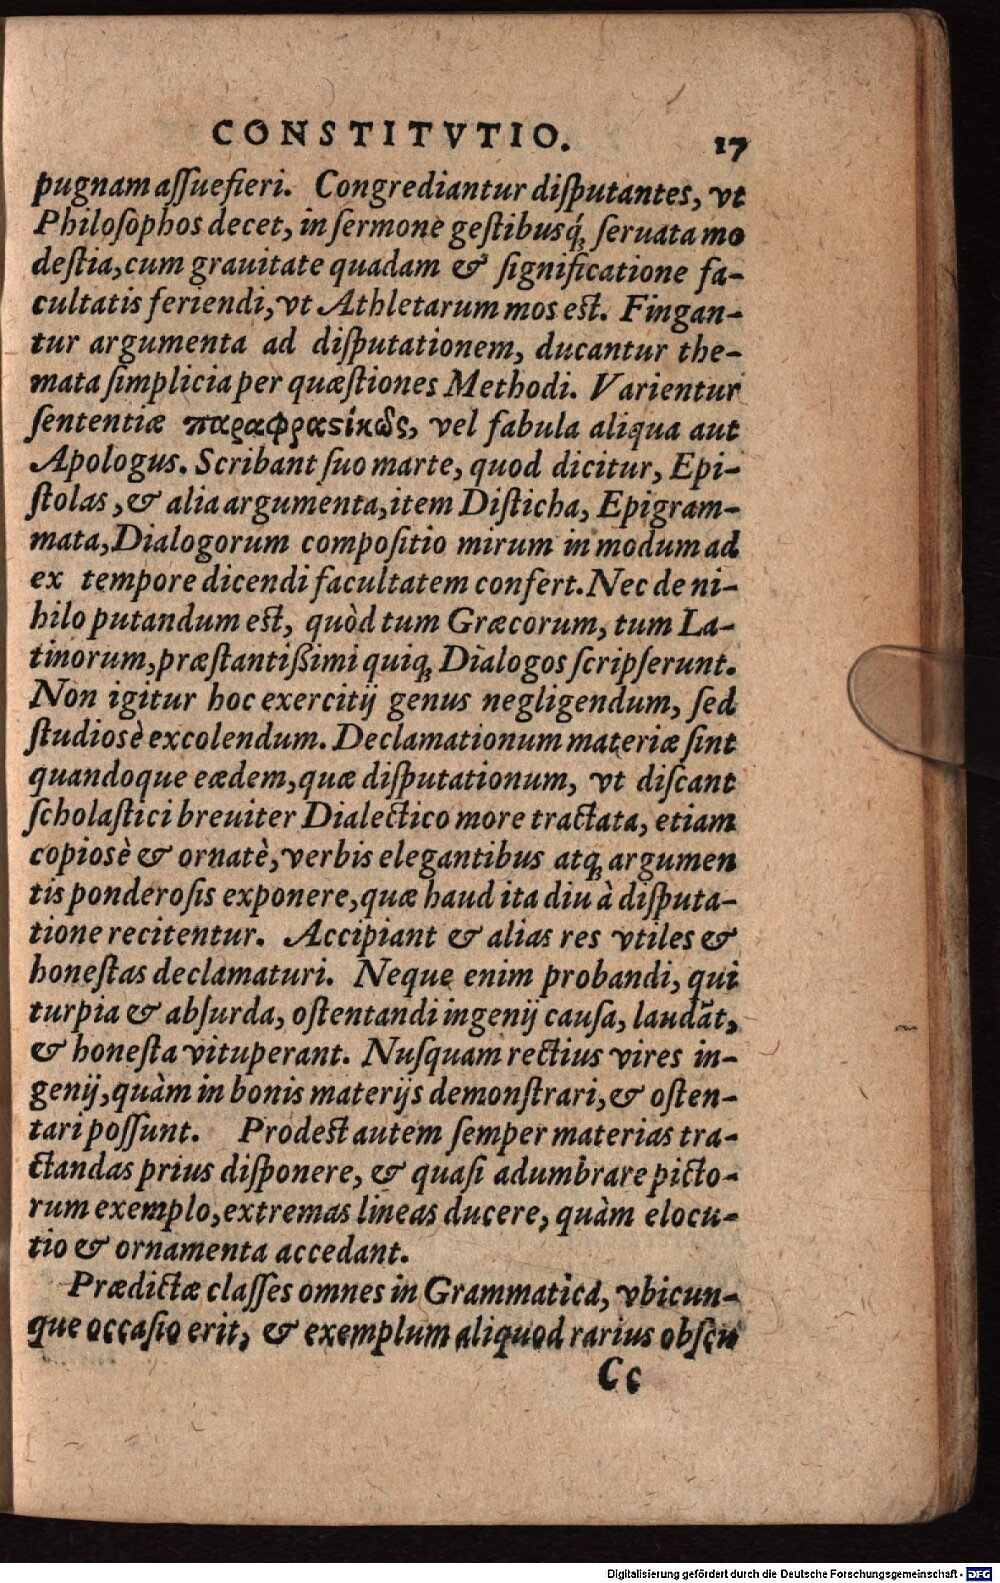 CONSTITVTIO. 17
pugnam aſſuefieri. Congrediantur diſputantes, vt
Philoſophos decet, in ſermone geſtibusq́; ſeruata mo
deſtia, cum grauitate quadam & ſignificatione fa-
cultatis feriendi, vt Athletarum mos est. Fingan-
tur argumenta ad diſputationem, ducantur the-
mata ſimplicia per quæſtiones Methodi. Varientur
ſententiæ παραφραϛίκῶς, vel fabula aliqua aut
Apologus. Scribant ſuo marte, quod dicitur, Epi-
ſtolas, & alia argumenta, item Diſticha, Epigram-
mata, Dialogorum compoſitio mirum in modum ad
ex tempore dicendi facultatem confert. Nec de ni-
hilo putandum est, quòd tum Græcorum, tum La-
tinorum, præſtantißimi quiq; Dialogos ſcripſerunt.
Non igitur hoc exercitij genus negligendum, ſed
ſtudiosè excolendum. Declamationum materiæ ſint
quandoque eædem, quæ diſputationum, vt diſcant
ſcholaſtici breuiter Dialectico more tractata, etiam
copiosè & ornatè, verbis elegantibus atq; argumen
tis ponderoſis exponere, quæ haud ita diu à diſputa-
tione recitentur. Accipiant & alias res vtiles &
honeſtas declamaturi. Neque enim probandi, qui
turpia & abſurda, oſtentandi ingenij cauſa, laudãt,
& honeſta vituperant. Nuſquam rectius vires in-
genij, quàm in bonis materijs demonſtrari, & oſten-
tari poſſunt. Prodest autem ſemper materias tra-
ctandas prius diſponere, & quaſi adumbrare picto-
rum exemplo, extremas lineas ducere, quàm elocu-
tio & ornamenta accedant.
Prædictæ claſſes omnes in Grammatica, vbicun-
que occaſio erit, & exemplum aliquod rarius obſcu
Cc
Digitalisierung gefördert durch die Deutsche Forschungsgemeinschaft - DFG